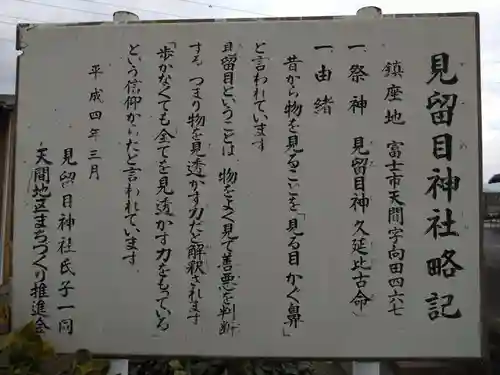 見留目神社略記
鎮座地 富士市天間字向田四六七
一 祭神 見留目神久延比古命
一 由緒
昔から物を見ることを「見る目かぐ鼻」
と言われています
見留目ということは 物をよく見て善悪を判断
する つまり物を見透かす力だと解釈されます
「歩かなくても全てを見透かす力をもっている」
という信仰からだと言われています。
平成四年三月
見留目神社氏子一同
天間地区まちづくり推進会